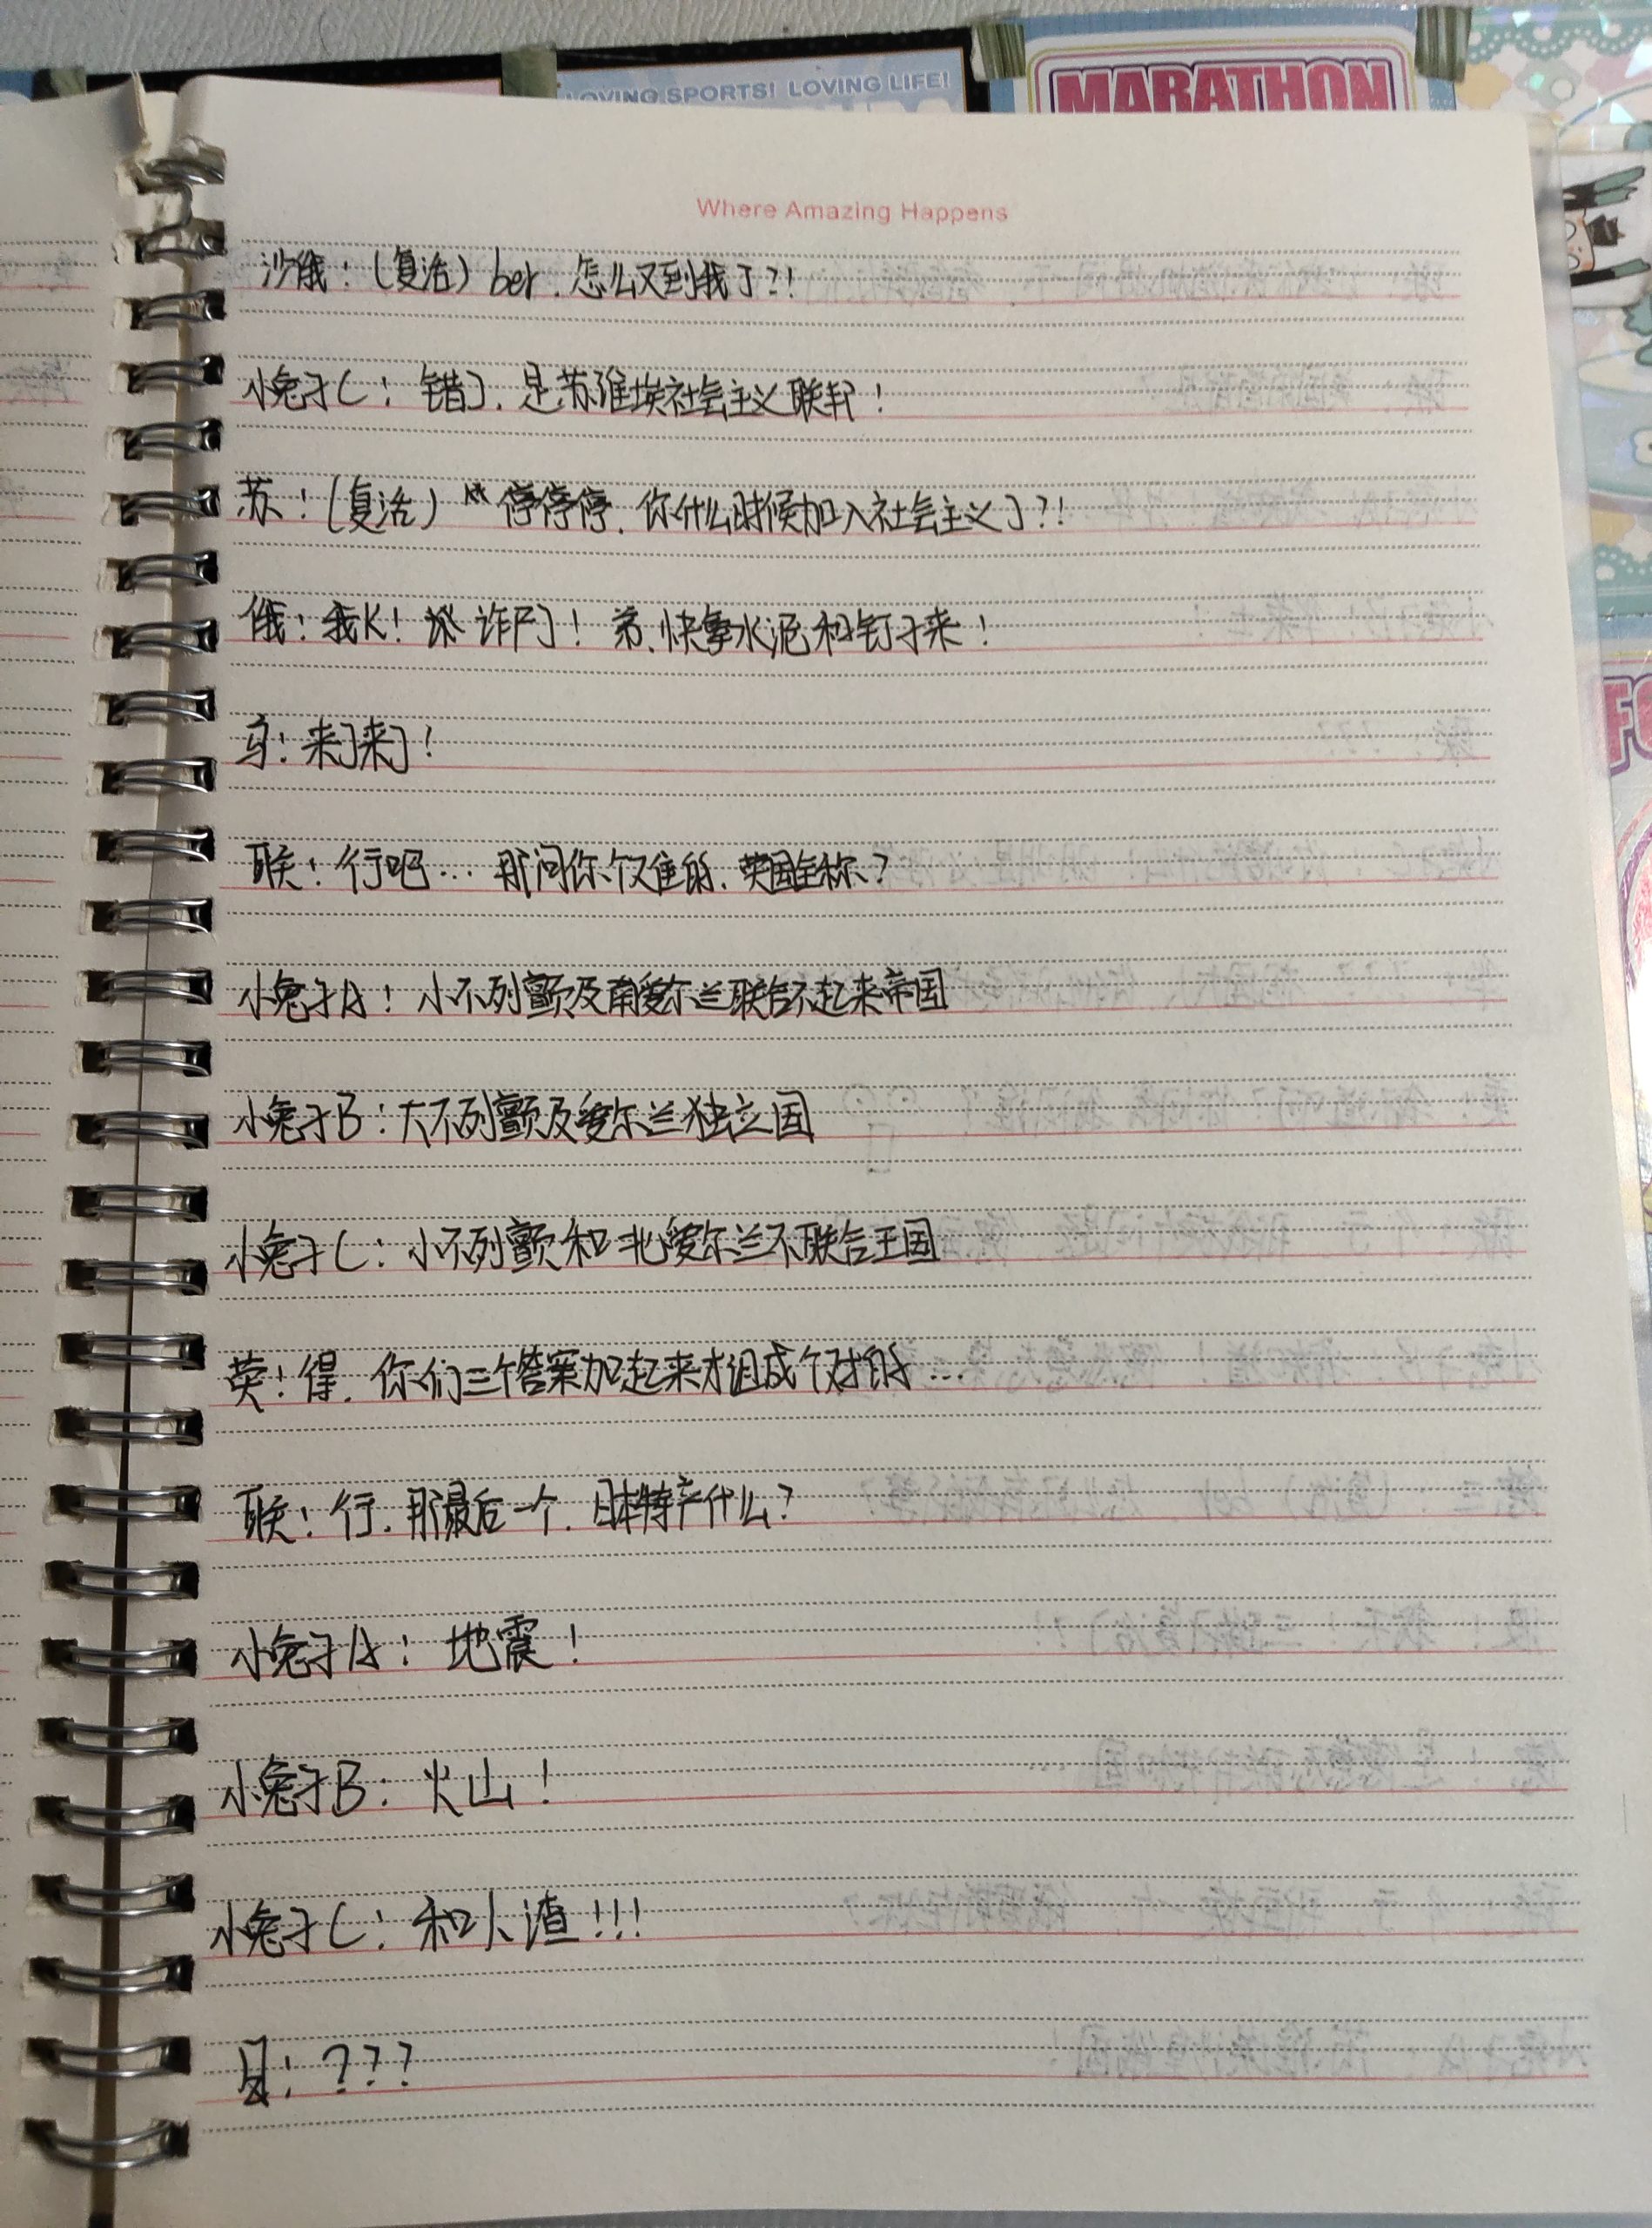 LOVING SPORTS! LOVING LIFE!
MARATHON
Where Amazing Happens
沙俄：(复活) ber，怎么又到我了?!
小兔子C：错了，是苏维埃社会主义联邦！
苏：(复活) 停停停，你什么时候加入社会主义了?!
俄：我K！诈尸了！弟，快拿水泥和钉子来！
乌：来了来了！
联：行吧… 那问你个难的，英国全称？
小兔子A：小不列颠及南爱尔兰联合不起来帝国
小兔子B：大不列颠及爱尔兰独立国
小兔子C：小不列颠和北爱尔兰不联合王国
英：得，你们三个答案加起来才组成个对的…
联：行，那最后一个，日本特产什么？
小兔子A：地震！
小兔子B：火山！
小兔子C：和人渣!!!
日：???